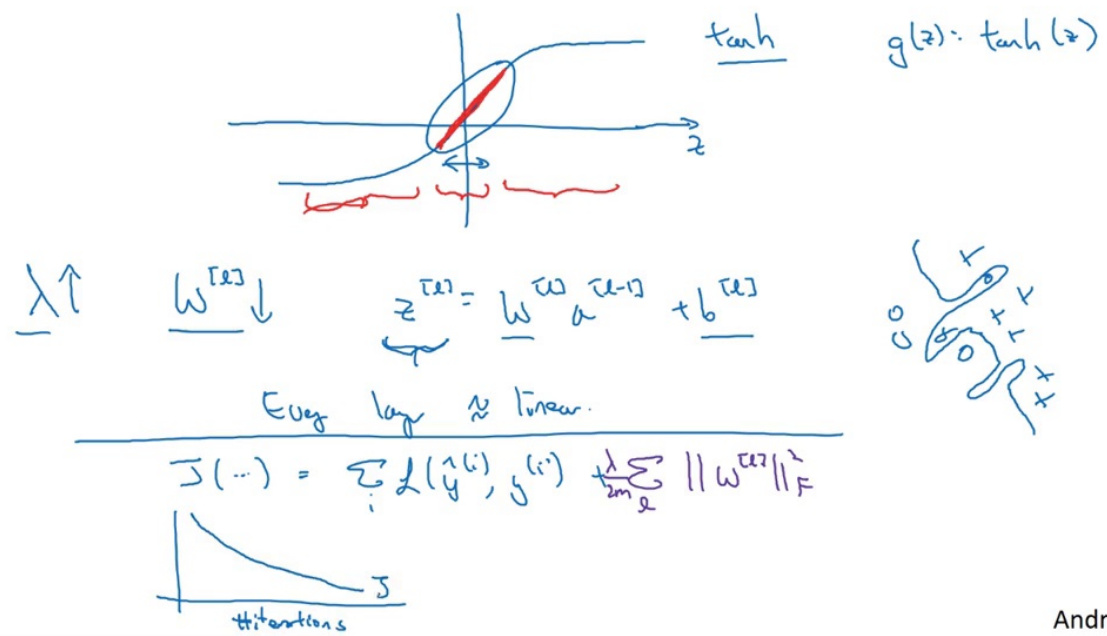 tanh g(z) = tanh(z)
z
λ↑ W^[l]↓ z^[l] = W^[l] a^[l-1] + b^[l]
Every layer ≈ linear.
J(...) = Σ_i L(ŷ^(i), y^(i)) + λ/2m Σ_l ||W^[l]||²_F
J
#iterations
Andr